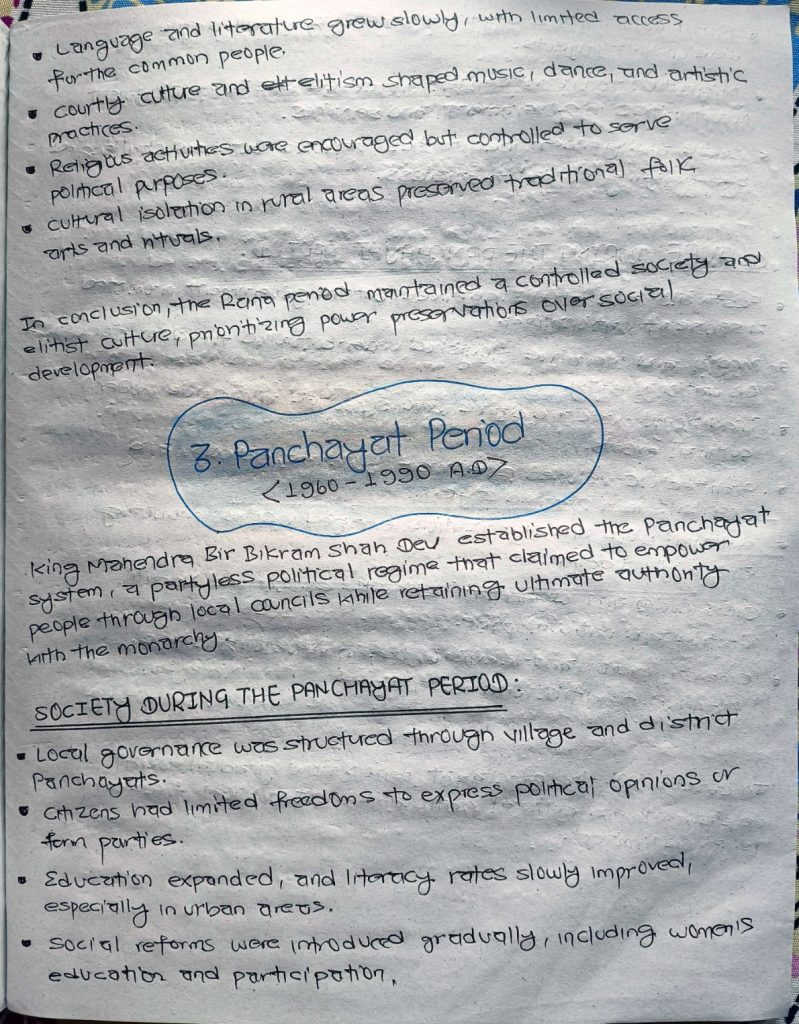 • Language and literature grew slowly, with limited access
for the common people.
• Courtly culture and elitism shaped music, dance, and artistic
practices.
• Religious activities were encouraged but controlled to serve
political purposes.
• Cultural isolation in rural areas preserved traditional folk
arts and rituals.
In conclusion, the Rana period maintained a controlled society and
elitist culture, prioritizing power preservations over social
development.
3. Panchayat Period
<1960-1990 A.D>
King Mahendra Bir Bikram Shah Dev established the Panchayat
system, a partyless political regime that claimed to empower
people through local councils while retaining ultimate authority
with the monarchy.
SOCIETY DURING THE PANCHAYAT PERIOD:
• Local governance was structured through village and district
Panchayats.
• Citizens had limited freedoms to express political opinions or
form parties.
• Education expanded, and literacy rates slowly improved,
especially in urban areas.
• Social reforms were introduced gradually, including women's
education and participation.